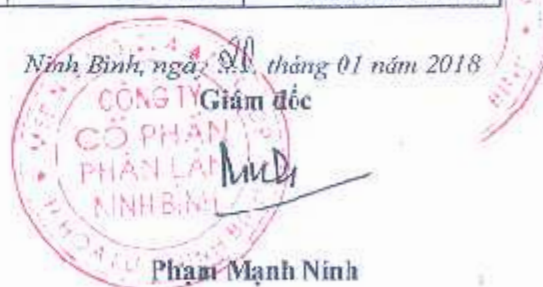 Ninh Bình, ngày tháng 01 năm 2018
Giám đốc
CÔNG TY
CỔ PHẦN
PHÂN LÂN
NINH BÌNH
Phạm Mạnh Ninh